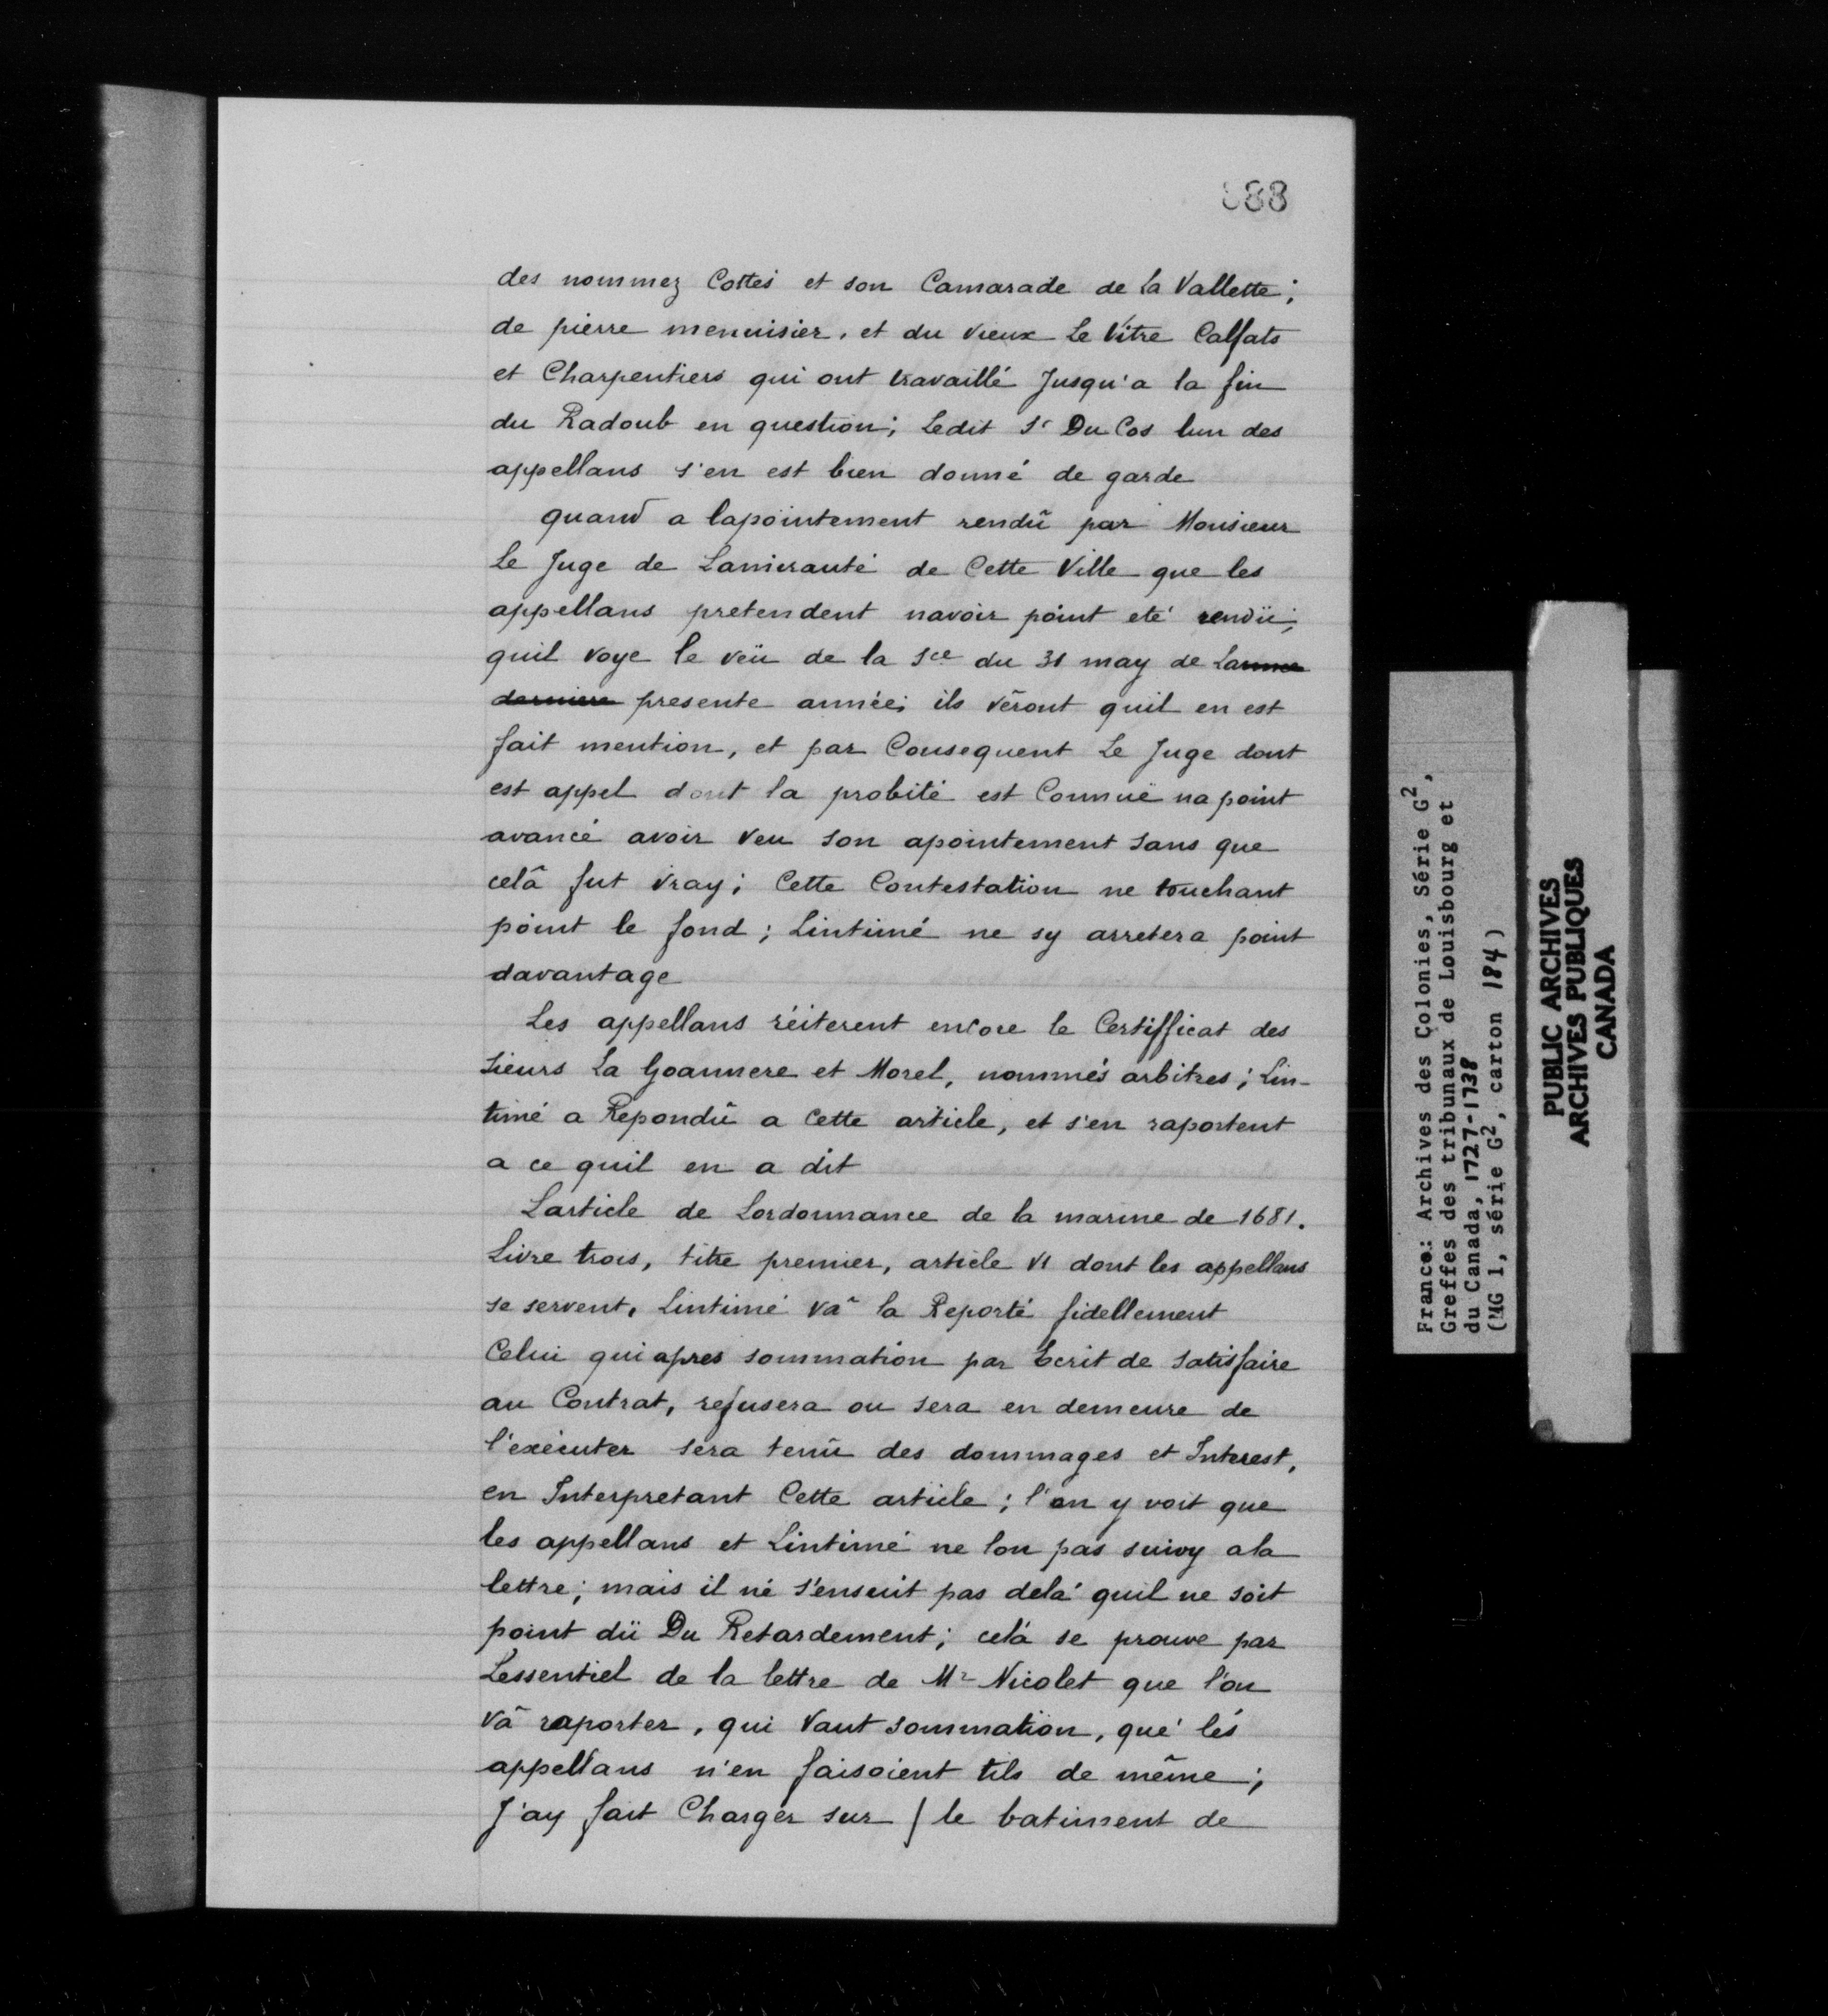 888
des nommez Cottes et son Camarade de la Vallette;
de pierre menuisier, et du vieux Le Vitre Calfats
et Charpentiers qui ont travaillé Jusqu'a la fin
du Radoub en question; Ledit Sr Du Cos lun des
appellans s'en est bien donné de garde
quand a lapointement rendû par Monsieur
Le Juge de Lamirauté de Cette Ville que les
appellans pretendent navoir point eté rendü;
quil voye le veü de la sce du 31 may de Lannee
derniere presente année; ils vêront quil en est
fait mention, et par Consequent Le Juge dont
est appel dont la probité est Connuë na point
avancé avoir veu son apointement sans que
celâ fut vray; Cette Contestation ne touchant
point le fond; Lintimé ne sy arretera point
davantage
Les appellans réiterent encore le Certifficat des
Sieurs La Goannere et Morel, nommés arbitres; Lin-
timé a Repondû a cette article, et s'en raportent
a ce quil en a dit
Larticle de Lordonnance de la marine de 1681.
Livre trois, titre premier, article VI dont les appellans
se servent, Lintimé vâ la Reporté fidellement
Celui qui apres sommation par Ecrit de satisfaire
au Contrat, refusera ou sera en demeure de
l'exécuter sera tenû des dommages et Interest,
en Interpretant Cette article; l'on y voit que
les appellans et Lintimé ne lon pas suivy a la
lettre; mais il né s'enseuit pas delá quil ne soit
point dü Du Retardement; celà se prouve par
Lessentiel de la lettre de Mr Nicolet que l'on
vâ raporter, qui vaut sommation, qué lés
appellans n'en faisoient tils de même;
J'ay fait Charger sur / le batiment de
France: Archives des Colonies, Série G2,
Greffes des tribunaux de Louisbourg et
du Canada, 1727-1738
(MG 1, série G2, carton 184)
PUBLIC ARCHIVES
ARCHIVES PUBLIQUES
CANADA